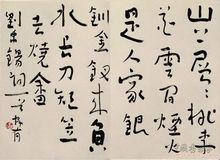 山上層〻桃李
花雲間煙火
是人家銀
釧金釵來負
水長刀短笠
去燒畬
劉禹錫詞